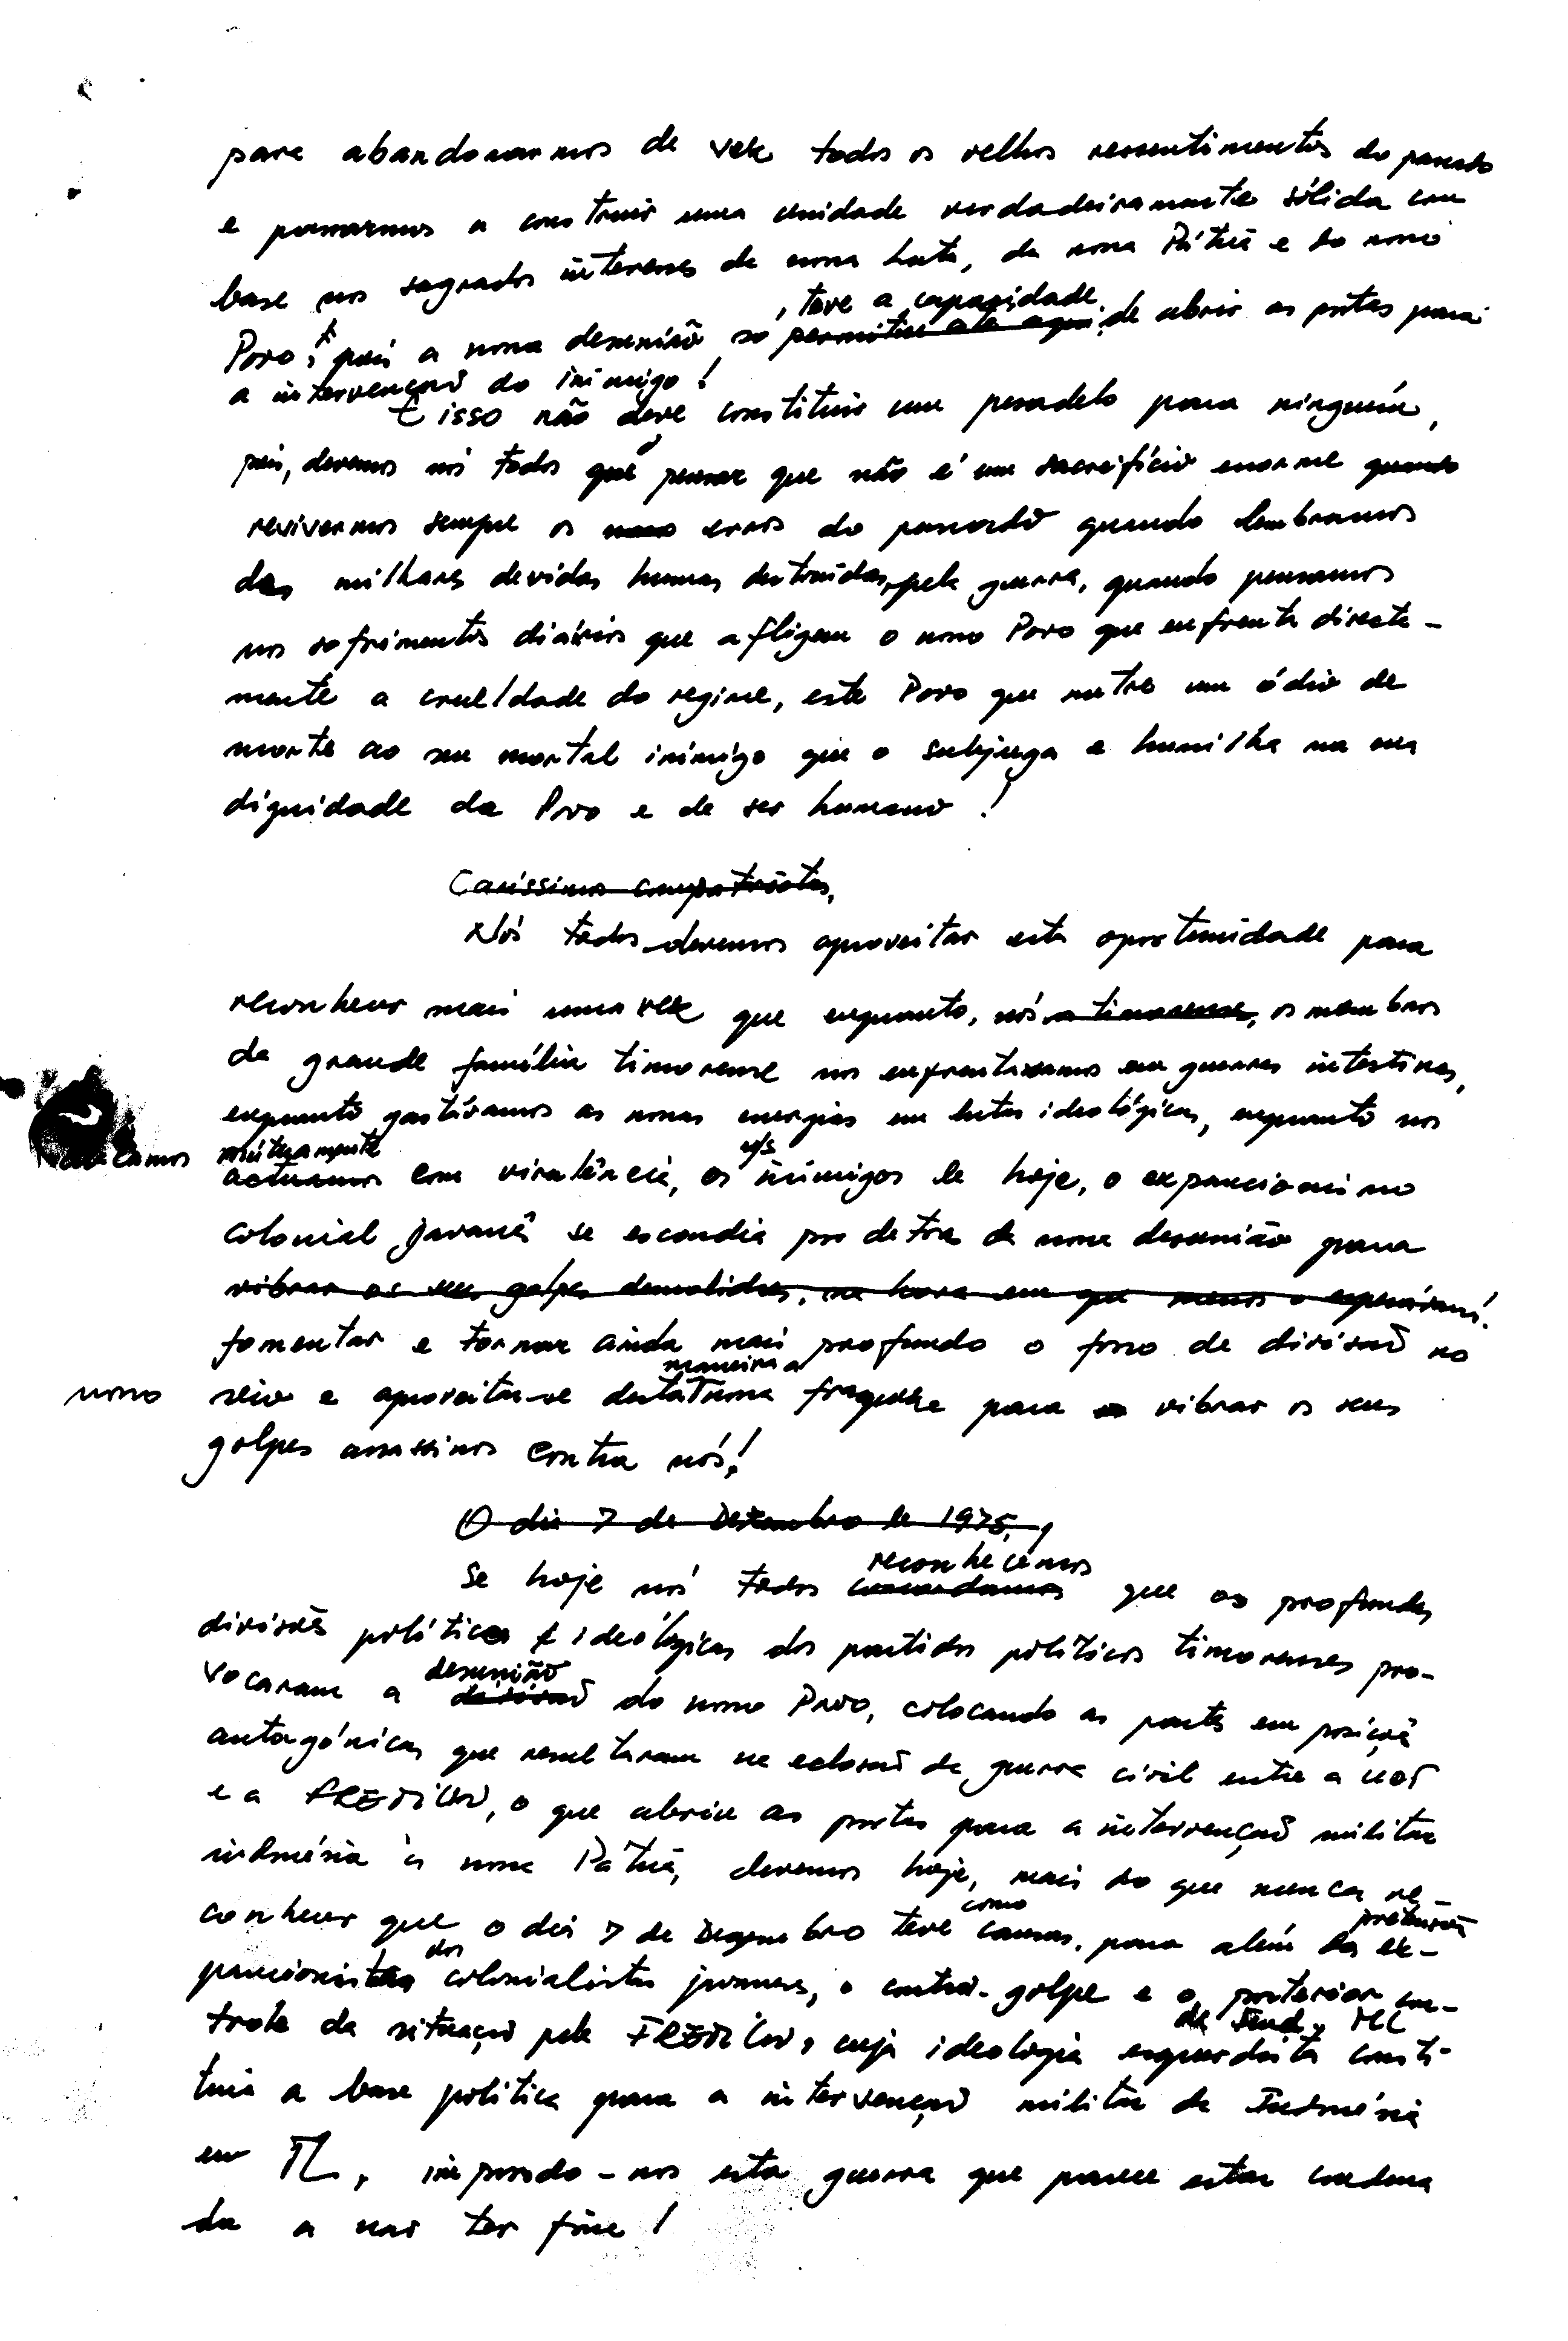 para abandonarmos de vez todos os velhos ressentimentos do passado
e passarmos a construir uma unidade verdadeiramente sólida com
base nos sagrados interesses da nossa luta, da nossa Pátria e do nosso
, teve a capacidade
Povo, pois a nossa desunião só permitiu até aqui de abrir as portas para
a intervenção do inimigo!
E isso não deve constituir um pesadelo para ninguém,
pois, devemos nós todos que pensar que não é um sacrifício enorme quando
revivermos sempre os erros do passado quando lembramos
das milhares de vidas humanas destruídas pela guerra, quando pensamos
nos sofrimentos diários que afligem o nosso Povo que enfrenta directa-
mente a crueldade do regime, este Povo que nutre um ódio de
morte ao seu mortal inimigo que o subjuga e humilha na sua
dignidade de Povo e de ser humano!
Caríssimos compatriotas,
Nós todos devemos aproveitar esta oportunidade para
reconhecer mais uma vez que enquanto, nós os timorenses, os membros
da grande família timorense nos enfrentávamos em guerras intestinas,
enquanto gastávamos as nossas energias em lutas ideológicas, enquanto nos
mútuamente
actuamos com virulência, os n/s inimigos de hoje, o expancionismo
colonial javanês se escondia por detrás da nossa desunião para
vibrar os seus golpes demolidores, na hora em que menos o esperávamos!
fomentar e tornar ainda mais profundo o fosso de divisão no
maneira a
nosso seio e aproveitar-se desta fraqueza para vibrar os seus
golpes assassinos contra nós!
O dia 7 de Dezembro de 1975,
reconhecemos
Se hoje nós todos concordamos que as profundas
divisões políticas e ideológicas dos partidos políticos timorenses pro-
desunião
vocaram a divisão do nosso Povo, colocando as partes em posições
antagónicas que resultaram na eclosão da guerra civil entre a UDT
e a FRETILIN, o que abriu as portas para a intervenção militar
indonésia à nossa Pátria, devemos hoje, mais do que nunca re-
como
conhecer que o dia 7 de Dezembro teve causas, para além das ex-
pretensões
dos
pancionistas colonialistas javaneses, o contra-golpe e o posterior con-
trole da situação pela FRETILIN, cuja ideologia esquerdista consti-
de tend. ML
tuia a base política para a intervenção militar da Indonésia
em TL, impondo-nos esta guerra que parece estar condena
da a não ter fim!